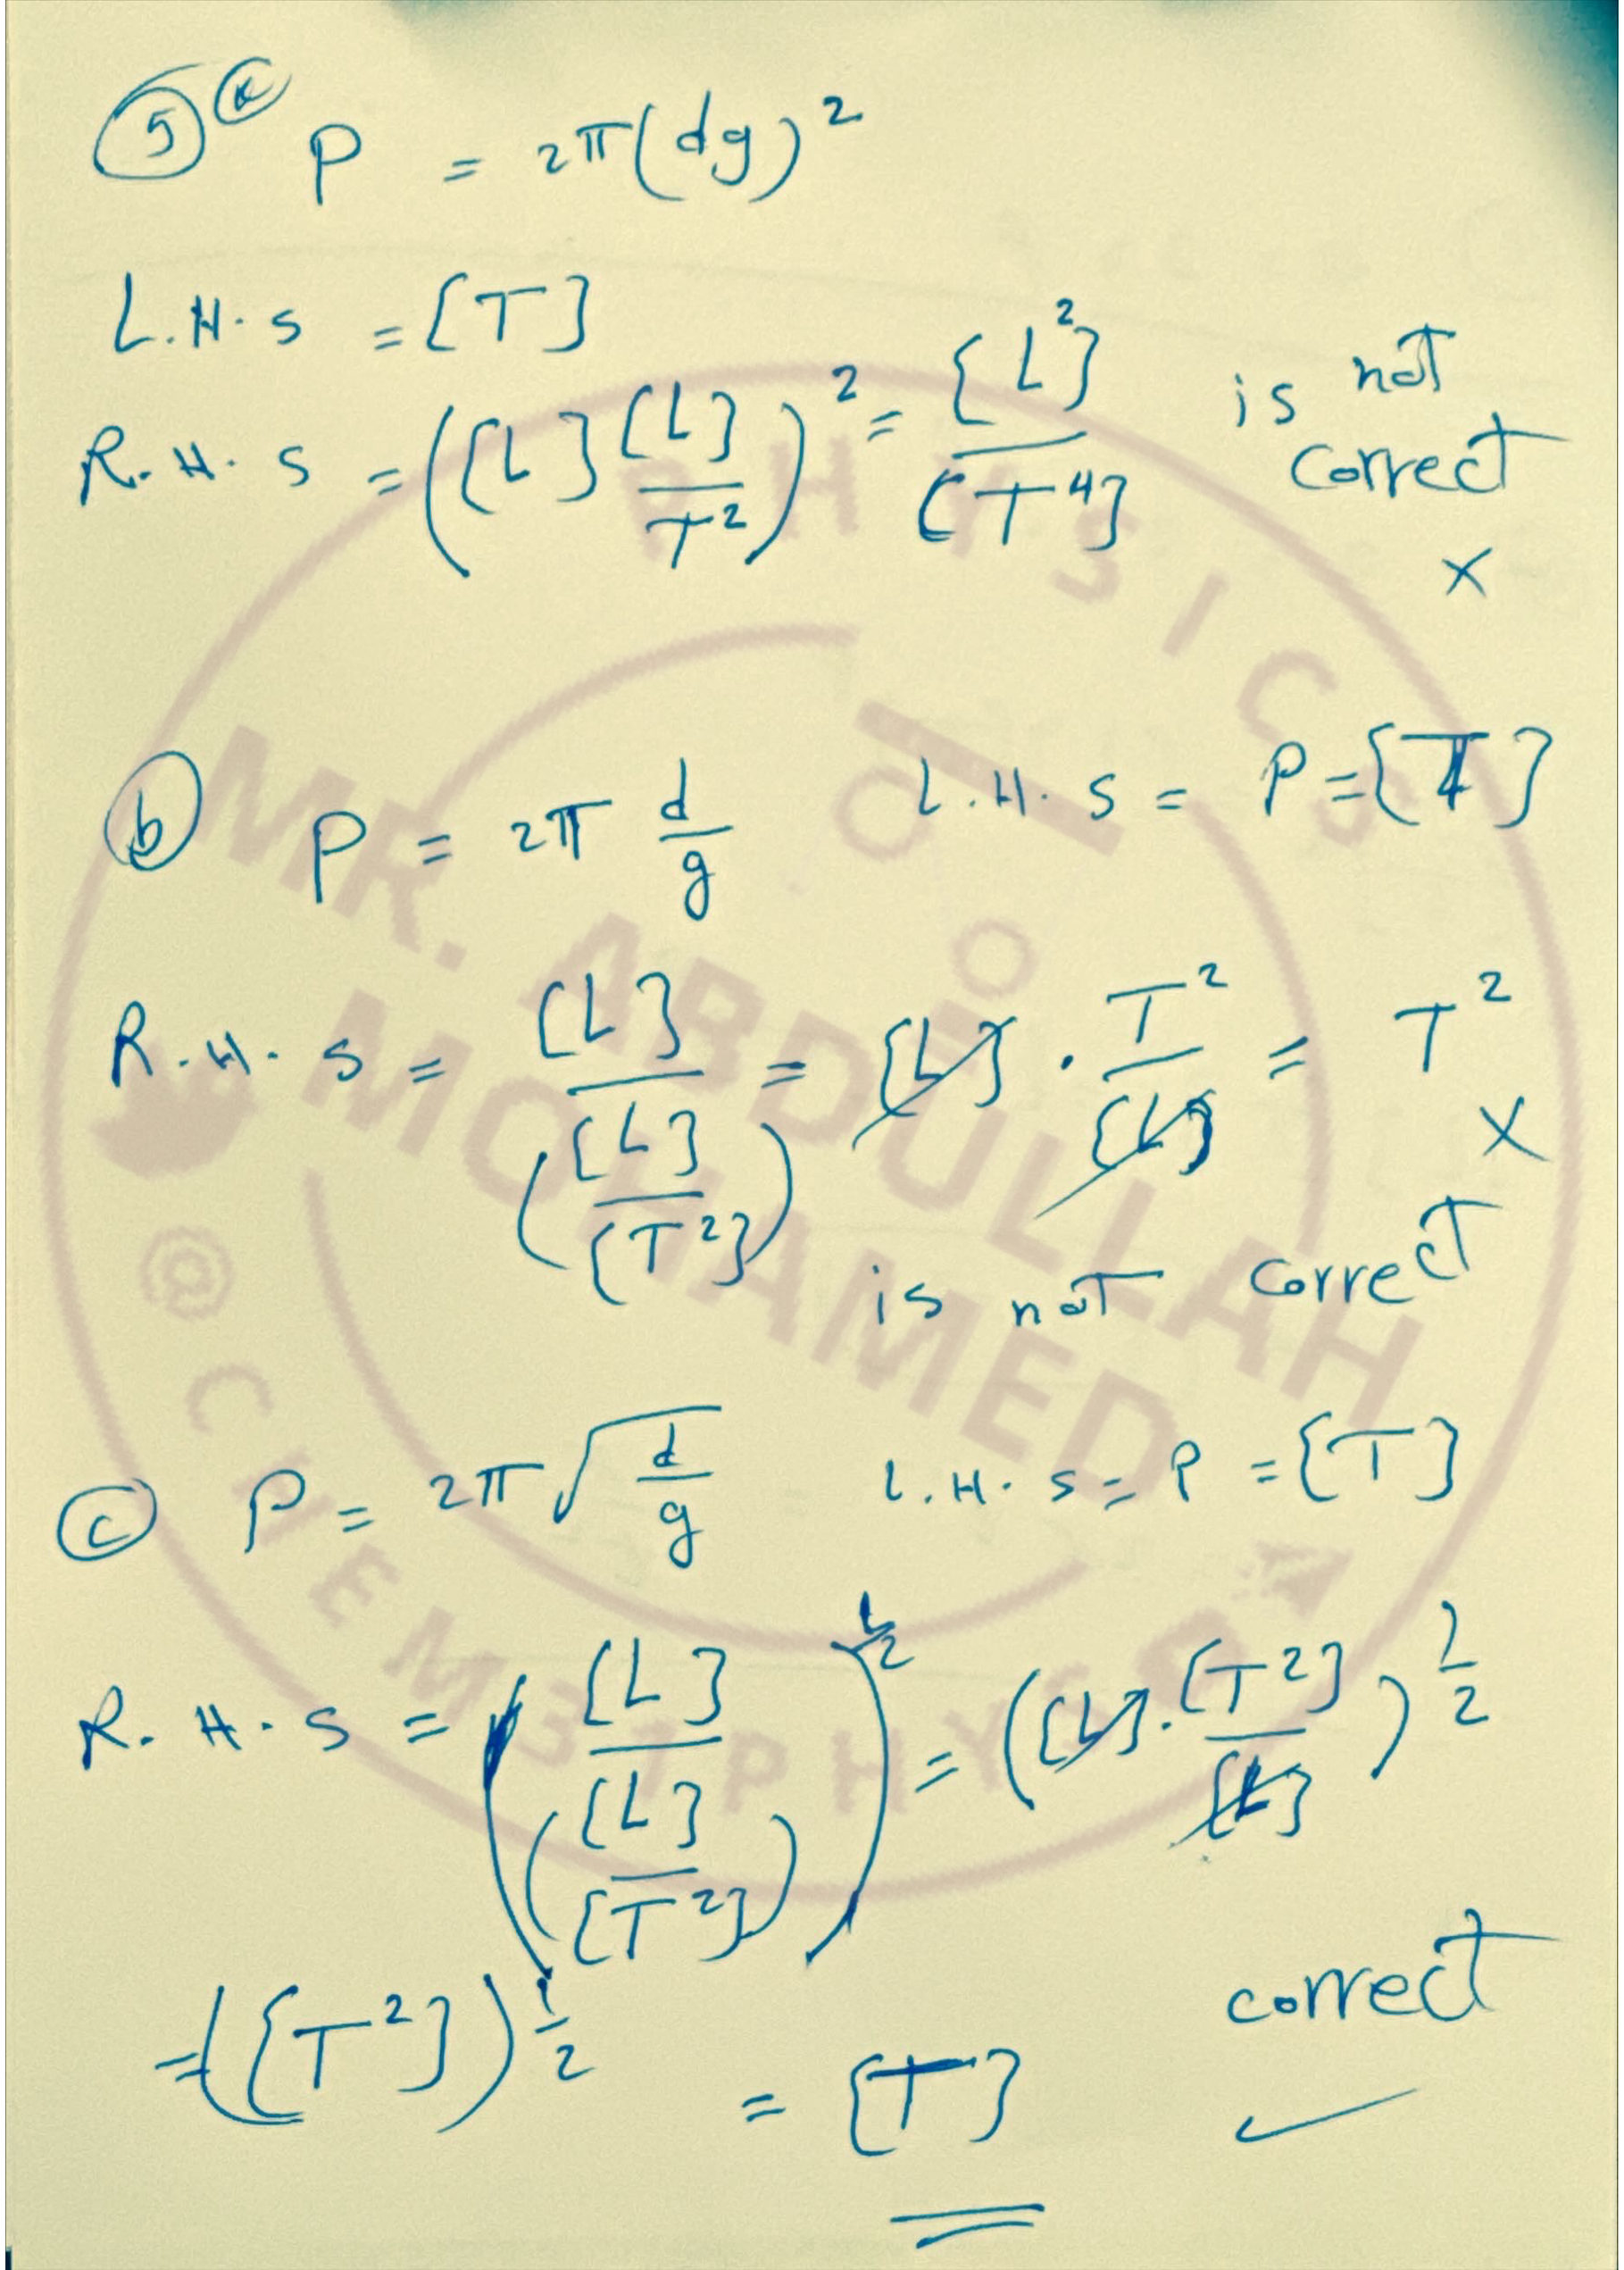 5 a P = 2π(dg)²
L.H.S = [T]
R.H.S = ([L] [L]/T²)² = [L²]/[T⁴] is not correct ×
b P = 2π d/g L.H.S = P = [T]
R.H.S = [L]/([L]/[T²]) = [L] · T²/[L] = T² ×
is not correct
c P = 2π √(d/g) L.H.S = P = [T]
R.H.S = ([L]/([L]/[T²]))^1/2 = ([L] · [T²]/[L])^1/2
= ([T²])^1/2 = [T] correct ✓
PHYSICS
MR. ABDULLAH
MOHAMED